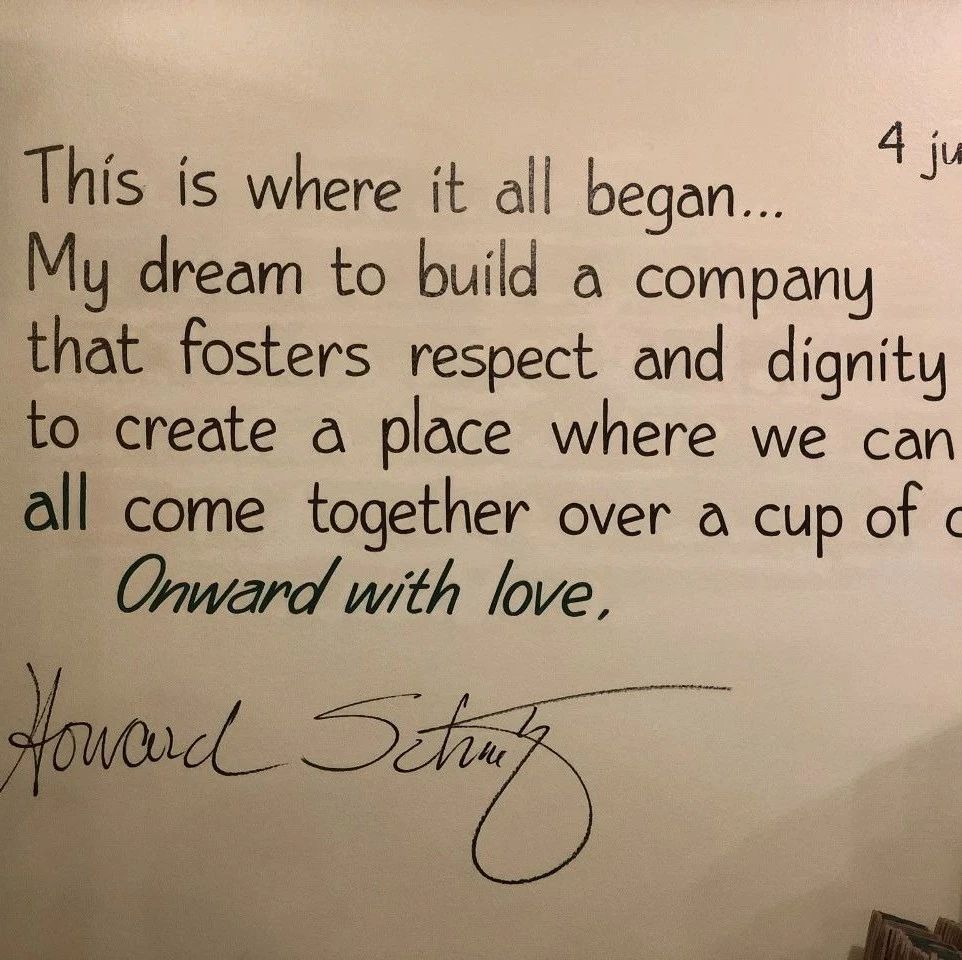 4 ju
This is where it all began...
My dream to build a company
that fosters respect and dignity
to create a place where we can
all come together over a cup of c
Onward with love,
Howard Schultz